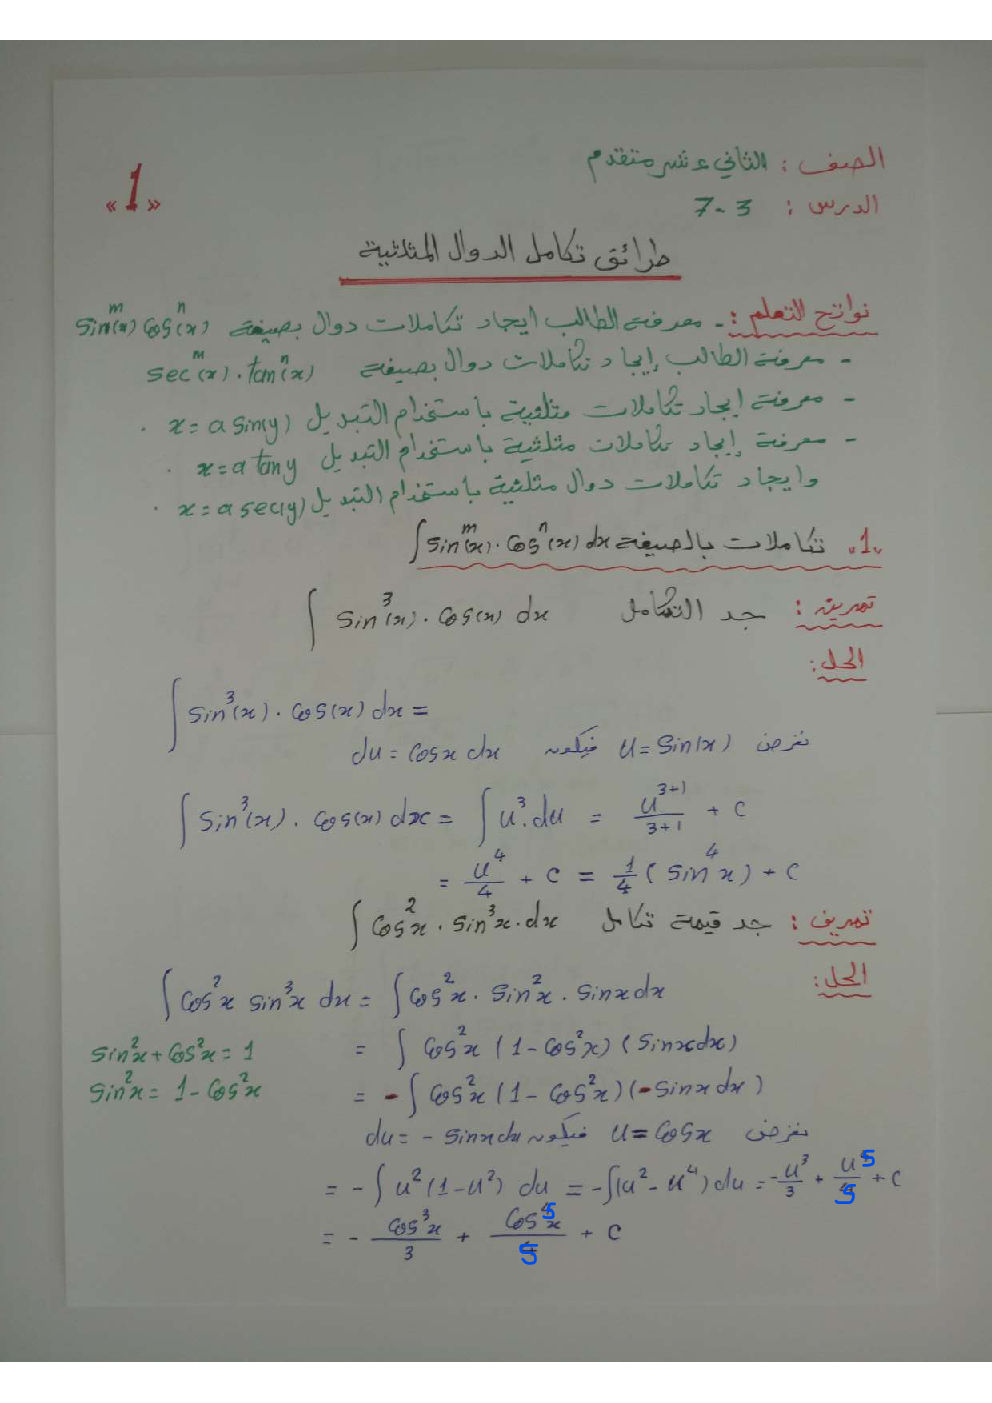 الصف : الثاني عشر متقدم
«1»
الدرس : 7-3
طرائق تكامل الدوال المثلثية
نواتج التعلم : - معرفة الطالب ايجاد تكاملات دوال بصيغة sin^m(x) cos^n(x)
- معرفة الطالب إيجاد تكاملات دوال بصيغة sec^m(x) . tan^n(x)
- معرفة إيجاد تكاملات مثلثية باستخدام التبديل x = a sin(y) .
- معرفة إيجاد تكاملات مثلثية باستخدام التبديل x = a tan y .
وايجاد تكاملات دوال مثلثية باستخدام التبديل x = a sec(y) .
«1» تكاملات بالصيغة ∫ sin^m(x) . cos^n(x) dx
تمرين : جد التكامل ∫ sin^3(x) . cos(x) dx
الحل :
∫ sin^3(x) . cos(x) dx =
نفرض u = sin(x) فيكون du = cosx dx
∫ sin^3(x) . cos(x) dx = ∫ u^3 . du = u^(3+1)/(3+1) + c
= u^4/4 + c = 1/4 (sin^4 x) + c
تمرين : جد قيمة تكامل ∫ cos^2 x . sin^3 x . dx
الحل :
∫ cos^2 x sin^3 x dx = ∫ cos^2 x . sin^2 x . sinx dx
sin^2 x + cos^2 x = 1
= ∫ cos^2 x (1 - cos^2 x) (sinx dx)
sin^2 x = 1 - cos^2 x
= - ∫ cos^2 x (1 - cos^2 x) (- sinx dx)
نفرض u = cosx فيكون du = - sinx dx
= - ∫ u^2 (1 - u^2) du = - ∫ (u^2 - u^4) du = - u^3/3 + u^5/5 + c
= - cos^3 x/3 + cos^5 x/5 + c